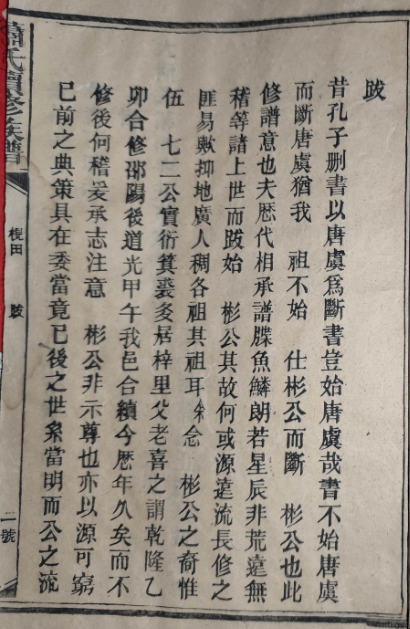 跋
昔孔子刪書以唐虞爲斷書豈始唐虞哉書不始唐虞
而斷唐虞猶我　祖不始　仕彬公而斷　彬公也此
修譜意也夫歷代相承譜牒魚鱗朗若星辰非荒遠無
稽等諸上世而跋始　彬公其故何或源遠流長修之
匪易歟抑地廣人稠各祖其祖耳余念　彬公之裔惟
伍　七二公實衍箕裘爰居梓里父老喜之謂乾隆乙
卯合修邵陽後道光甲午我邑合續今歷年久矣而不
修後何稽爰承志注意　彬公非示尊也亦以源可窮
已前之典策具在委當竟已後之世系當明而公之流
氏續修族譜
梘田　跋
二號